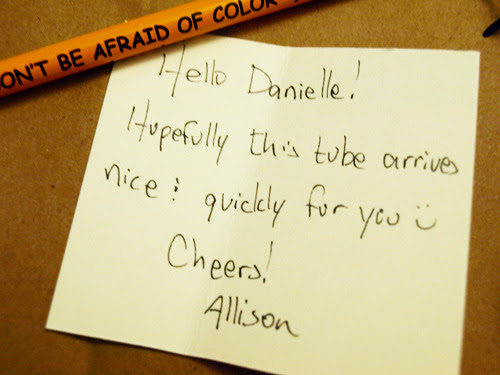 ON'T BE AFRAID OF COLOR
Hello Danielle!
Hopefully this tube arrives
nice & quickly for you
Cheers!
Allison